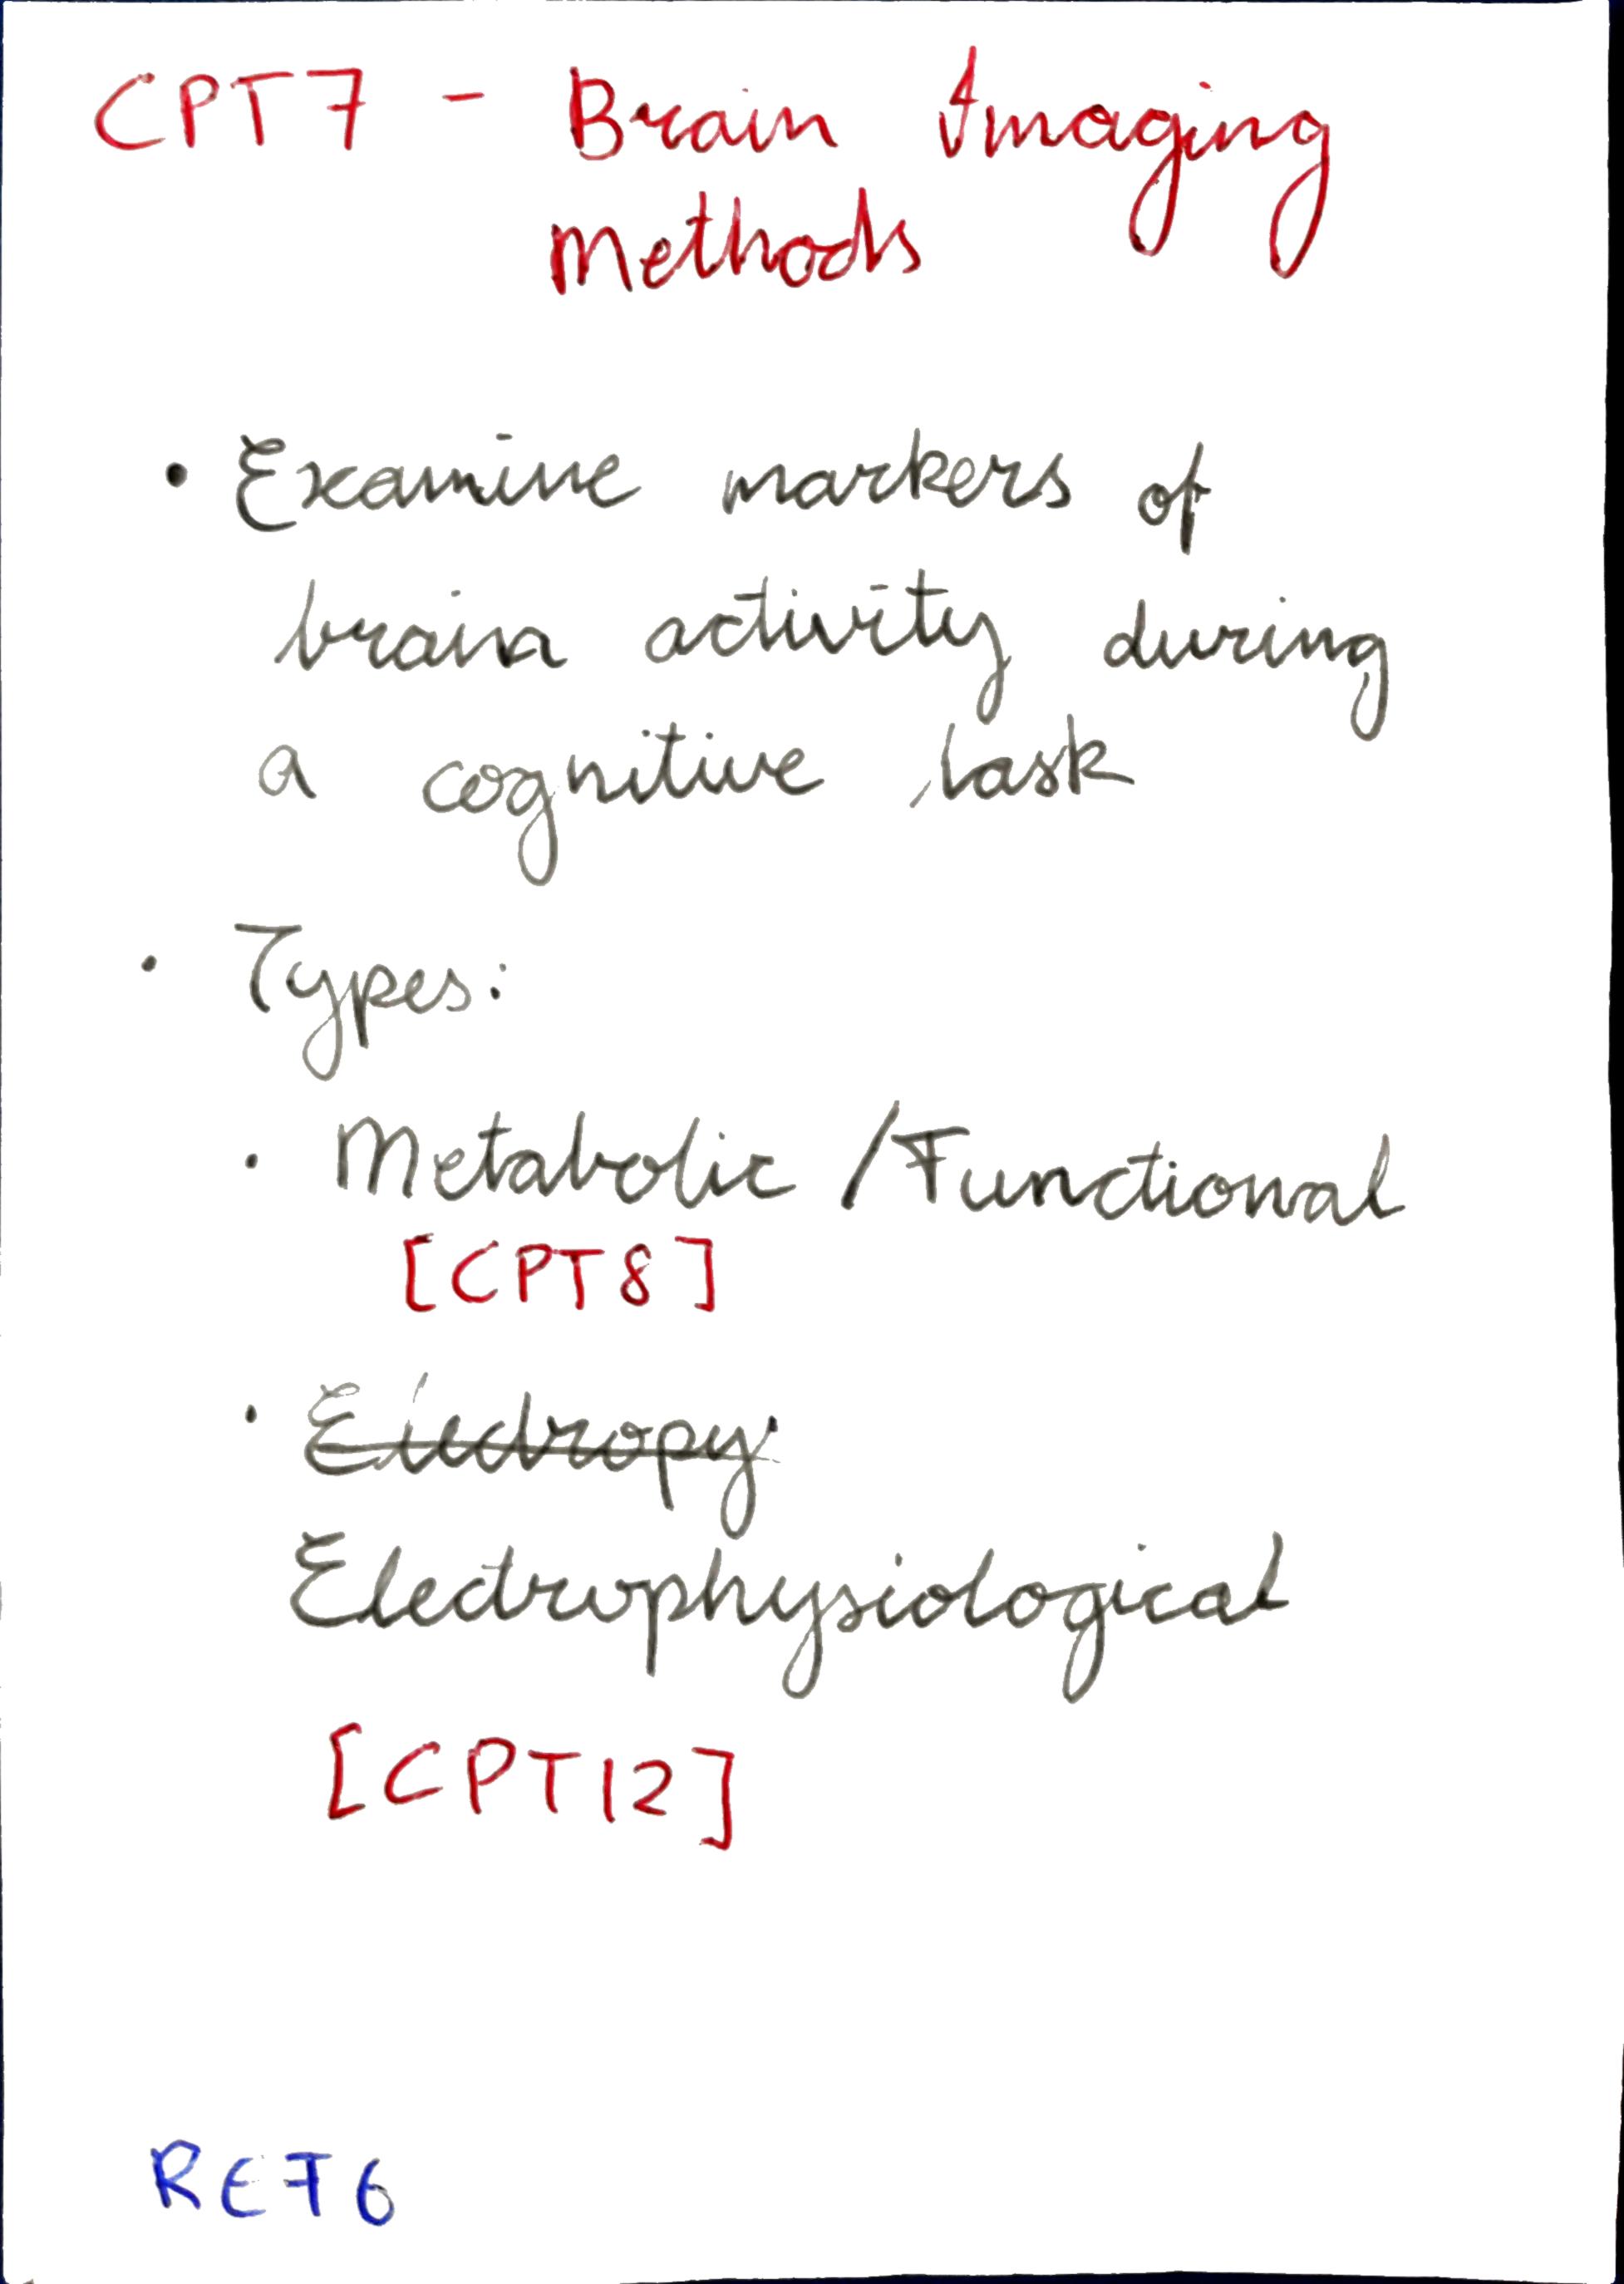 CPT7 - Brain Imaging
Methods
• Examine markers of
brain activity during
a cognitive task
• Types:
• Metabolic / Functional
[CPT8]
•
Electrophysiological
[CPT12]
REF6